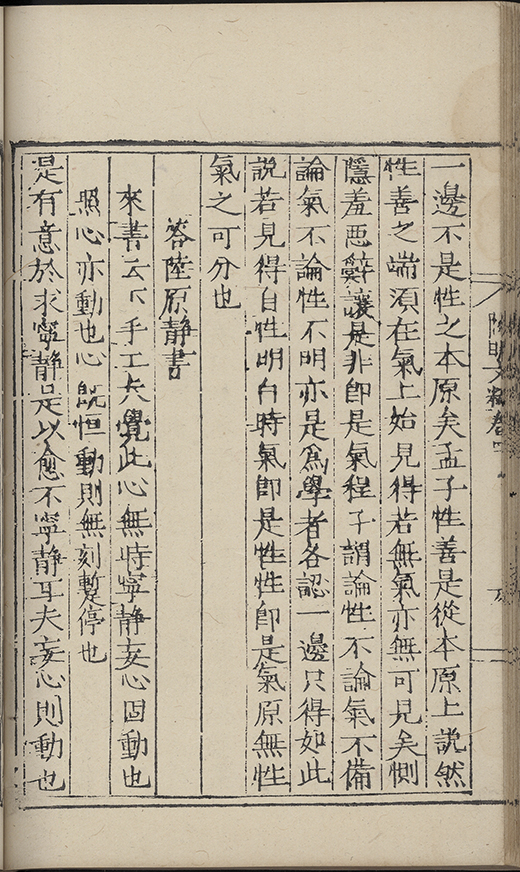 一邊不是性之本原矣孟子性善是從本原上説然
性善之端須在氣上始見得若無氣亦無可見矣惻
隱羞惡辭讓是非即是氣程子謂論性不論氣不備
論氣不論性不明亦是爲學者各認一邊只得如此
説若見得自性明白時氣即是性性即是氣原無性
氣之可分也
答陸原静書
來書云下手工夫覺此心無時寧静妄心固動也
照心亦動也心既恒動則無刻暫停也
是有意於求寧静是以愈不寧静耳夫妄心則動也